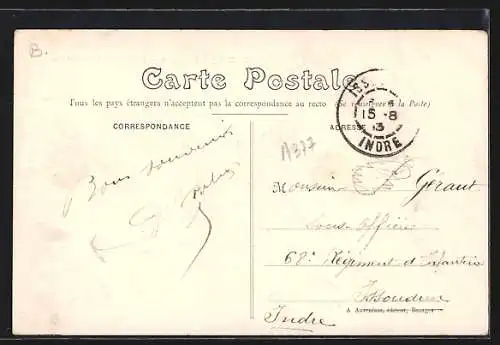 B.
Carte Postale
Tous les pays étrangers n'acceptent pas la correspondance au recto (Se renseigner à la Poste)
CORRESPONDANCE
ADRESSE
15 -8
13
INDRE
A377
Bons souvenirs
Monsieur Géraut
Sous-Officier
68e Régiment d'Infanterie
Issoudun
Indre
A. Auxenfans, éditeur, Bourges